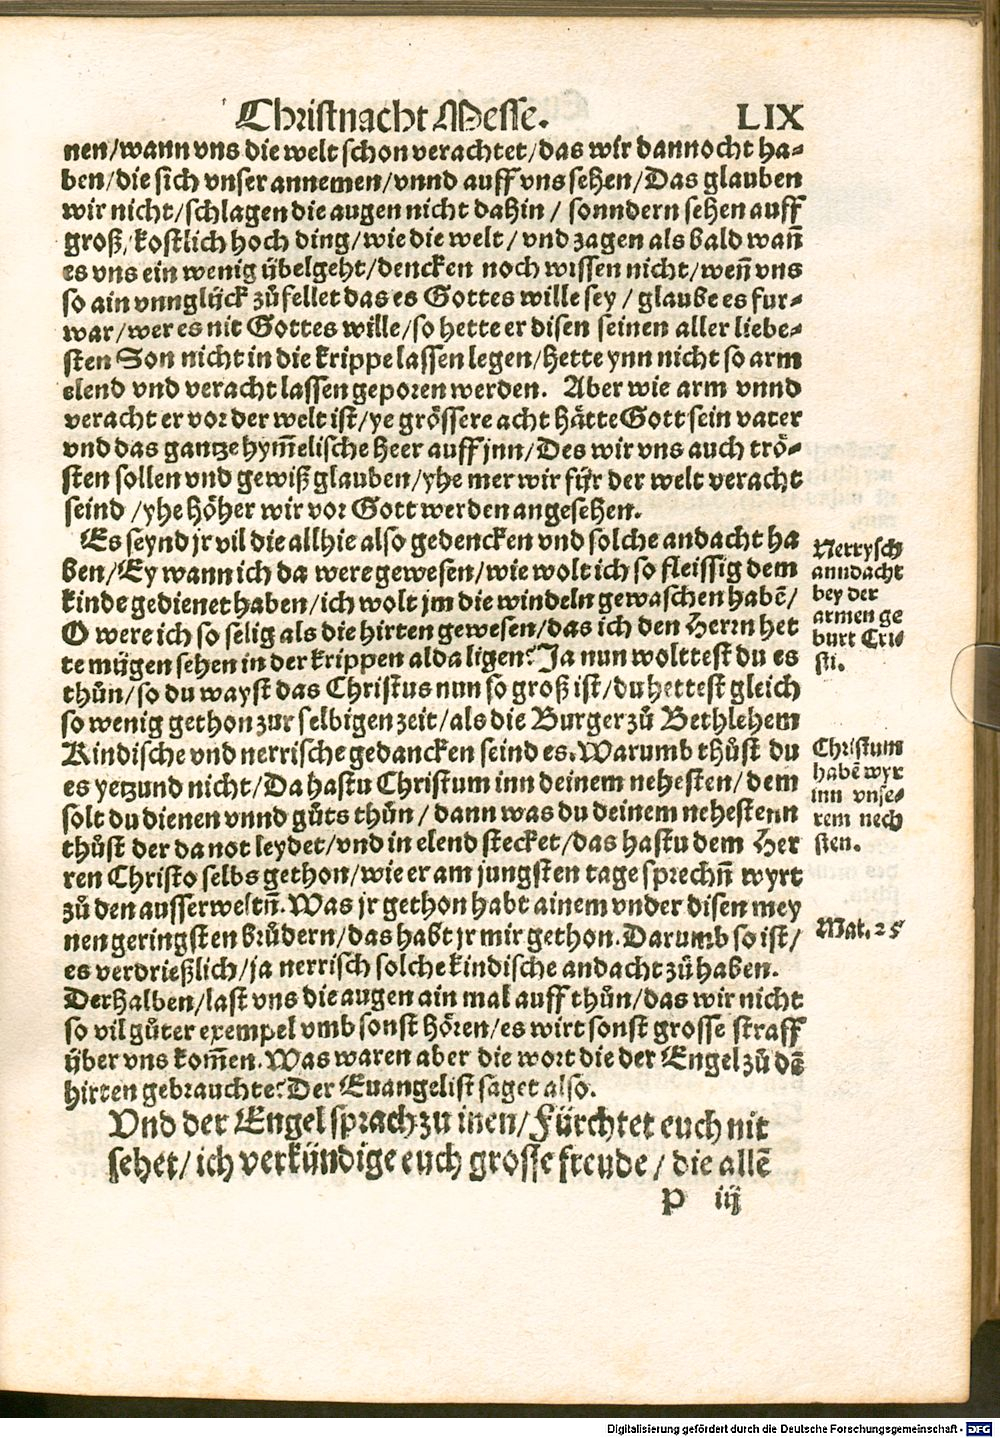 Christnacht Messe. LIX
nen/wann vns die welt schon verachtet/das wir dannocht ha-
ben/die sich vnser annemen/vnnd auff vns sehen/Das glauben
wir nicht/schlagen die augen nicht dahin/ sonndern sehen auff
groß/kostlich hoch ding/wie die welt/ vnd zagen als bald wañ
es vns ein wenig ybelgeht/dencken noch wissen nicht/weñ vns
so ain vnnglyck zůfellet das es Gottes wille sey/ glaube es fur-
war/wer es nit Gottes wille/so hette er disen seinen aller liebe-
sten Son nicht in die krippe lassen legen/hette ynn nicht so arm
elend vnd veracht lassen geporen werden. Aber wie arm vnnd
veracht er vor der welt ist/ye grössere acht hätte Gott sein vater
vnd das gantze hym̃elische heer auff jnn/Des wir vns auch trö-
sten sollen vnd gewiß glauben/yhe mer wir fÿr der welt veracht
seind/yhe höher wir vor Gott werden angesehen.
Es seynd jr vil die allhie also gedencken vnd solche andacht ha
ben/Ey wann ich da were gewesen/wie wolt ich so fleissig dem
kinde gedienet haben/ich wolt jm die windeln gewaschen habẽ/
O were ich so selig als die hirten gewesen/das ich den Herrn het
te mügen sehen in der krippen alda ligen? Ja nun wolttest du es
thůn/so du wayst das Christus nun so groß ist/du hettest gleich
so wenig gethon zur selbigen zeit/als die Burger zů Bethlehem
Kindische vnd nerrische gedancken seind es. Warumb thůst du
es yetzund nicht/Da hastu Christum inn deinem nehesten/dem
solt du dienen vnnd gůts thůn/ dann was du deinem nehestenn
thůst der da not leydet/vnd in elend stecket/das hastu dem Her
ren Christo selbs gethon/wie er am jungsten tage sprechñ wyrt
zů den ausserweltñ. Was jr gethon habt ainem vnder disen mey
nen geringsten brůdern/das habt jr mir gethon. Darumb so ist/
es verdrießlich/ja nerrisch solche kindische andacht zů haben.
Derhalben/last vns die augen ain mal auff thůn/das wir nicht
so vil gůter exempel vmb sonst hören/es wirt sonst grosse straff
ÿber vns kom̃en. Was waren aber die wort die der Engel zů dẽ
hirten gebrauchte? Der Euangelist saget also.
Vnd der Engel sprach zu inen/Fürchtet euch nit
sehet/ich verkündige euch grosse freude/die allẽ
P iij
Nerrysch
anndacht
bey der
armen ge
burt Cri-
sti.
Christum
habẽ wyr
inn vnse-
rem nech
sten.
Mat. 25
Digitalisierung gefördert durch die Deutsche Forschungsgemeinschaft - DFG